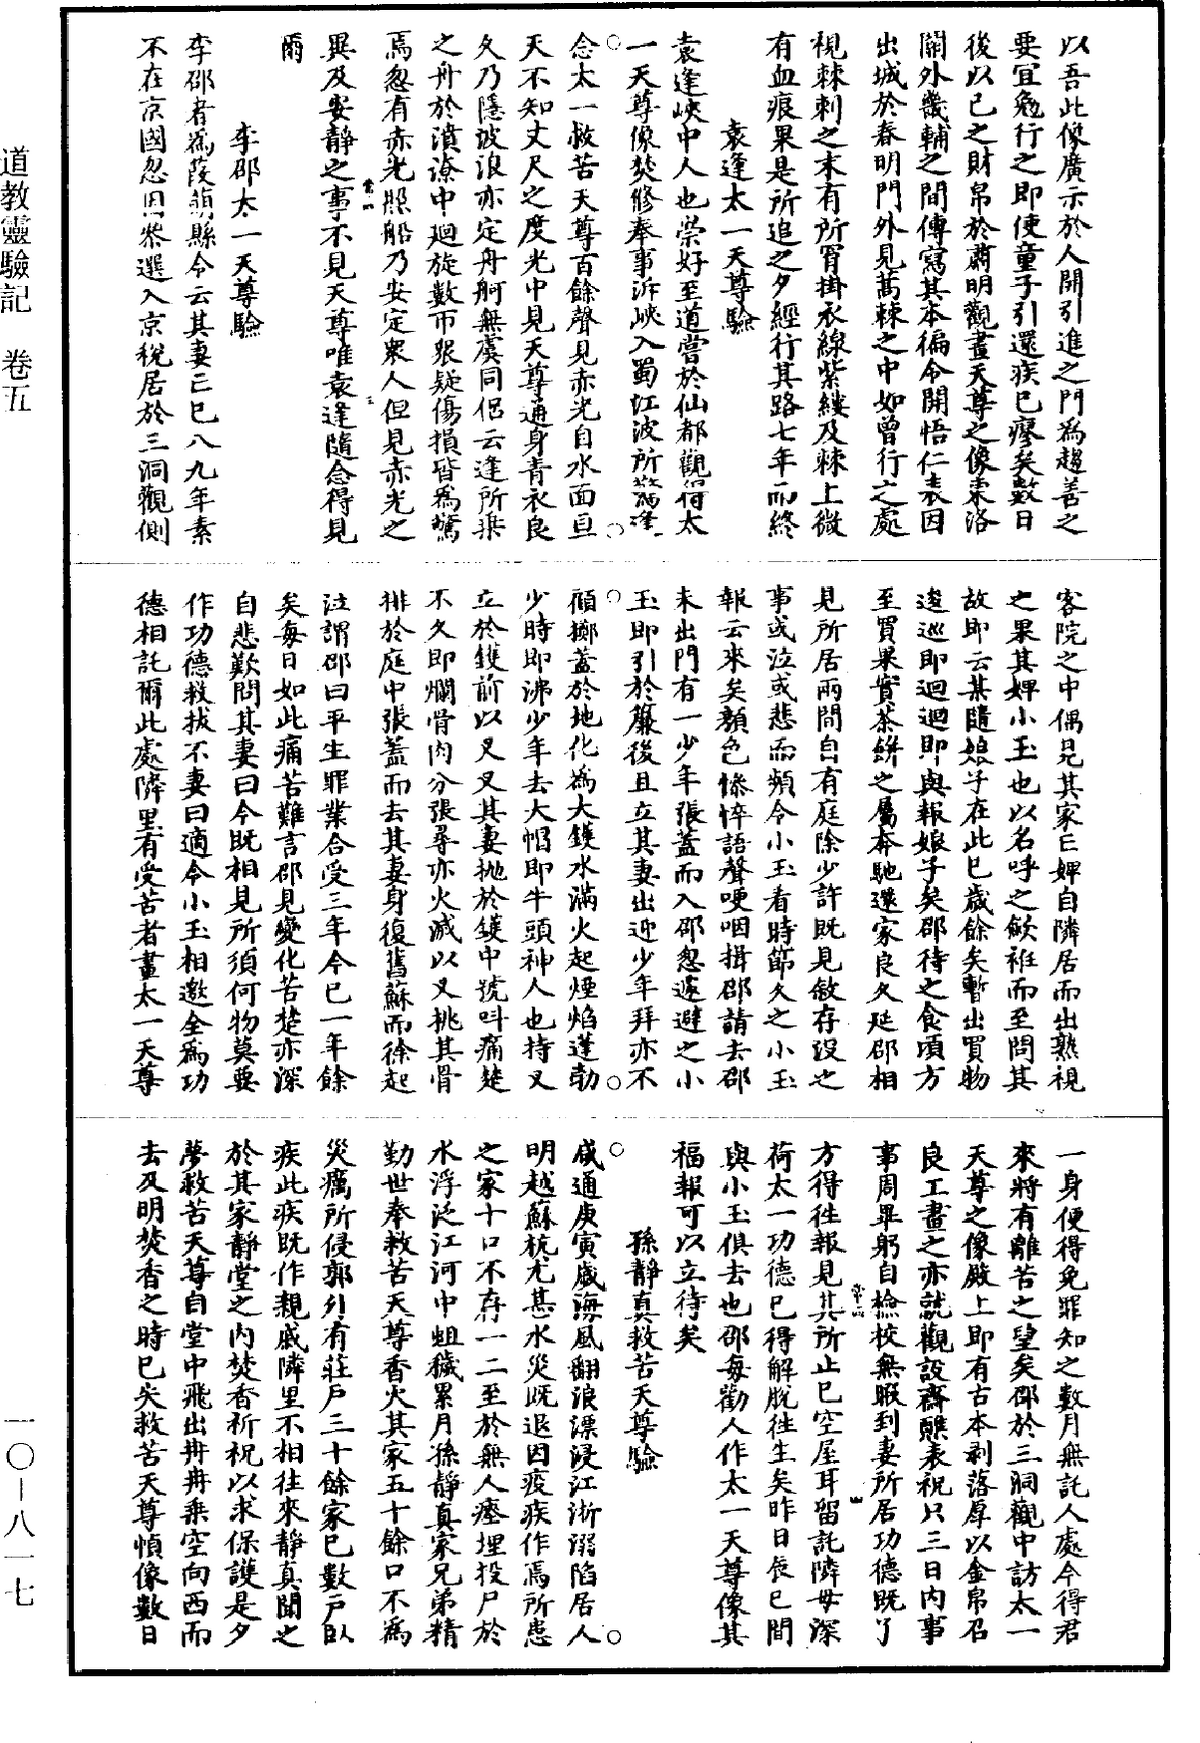 以吾此像廣示於人開引進之門為趨善之
要宜勉行之即使童子引還疾已瘳矣數日
後以已之財帛於肅明觀畫天尊之像東洛
關外畿輔之間傳寫其本徧令開悟仁表因
出城於春明門外見蒿棘之中如曾行之處
視棘刺之末有所罥掛衣線紫縷及棘上微
有血痕果是所追之夕經行其路七年而終
袁逢太一天尊驗
袁逢峽中人也崇好至道嘗於仙都觀得太
一天尊像焚修奉事泝峽入蜀江波所驚逢
念太一救苦天尊百餘聲見赤光自水面亘
天不知丈尺之度光中見天尊通身青衣良
久乃隱波浪亦定舟舸無虞同侶云逢所乘
之舟於濆潦中廻旋數帀眾疑傷損皆為驚
焉忽有赤光照船乃安定眾人但見赤光之
異及安靜之事不見天尊唯袁逢隨念得見
爾
李邵太一天尊驗
李邵者為葭萌縣令云其妻亡已八九年素
不在京國忽因叅選入京稅居於三洞觀側
客院之中偶見其家亡婢自隣居而出熟視
之果其婢小玉也以名呼之斂袵而至問其
故即云某隨娘子在此已歲餘矣暫出買物
逡巡即迴迴即與報娘子矣邵待之食頃方
至買果實茶餅之屬奔馳還家良久延邵相
見所居兩間自有庭除少許既見敘存沒之
事或泣或悲而頻令小玉看時節久之小玉
報云來矣顏色慘悴語聲哽咽揖邵請去邵
未出門有一少年張蓋而入邵忽遽避之小
玉即引於簾後且立其妻出迎少年拜亦不
顧擲蓋於地化為大鑊水滿火起煙焰蓬勃
少時即沸少年去大帽即牛頭神人也持叉
立於鑊前以叉叉其妻抛於鑊中號呌痛楚
不久即爛骨肉分張尋亦火滅以叉挑其骨
排於庭中張蓋而去其妻身復舊蘇而徐起
泣謂邵曰平生罪業合受三年今已一年餘
矣每日如此痛苦難言邵見變化苦楚亦深
自悲歎問其妻曰今既相見所須何物莫要
作功德救拔不妻曰適令小玉相邀全為功
德相託爾此處隣里有受苦者畫太一天尊
一身便得免罪知之數月無託人處今得君
來將有離苦之望矣邵於三洞觀中訪太一
天尊之像殿上即有古本剥落厚以金帛召
良工畫之亦就觀設齋醮表祝只三日內事
事周畢躬自檢校無暇到妻所居功德既了
方得徃報見其所止已空屋耳留託隣母深
荷太一功德已得解脫徃生矣昨日辰巳間
與小玉俱去也邵每勸人作太一天尊像其
福報可以立待矣
孫靜真救苦天尊驗
咸通庚寅歲海風翻浪漂浸江浙溺陷居人
明越蘇杭尤甚水災既退因疫疾作焉所患
之家十口不存一二至於無人瘞埋投尸於
水浮泛江河中蛆穢累月孫靜真家兄弟精
勤世奉救苦天尊香火其家五十餘口不為
災癘所侵郭外有莊戶三十餘家已數戶臥
疾此疾既作親戚隣里不相往來靜真聞之
於其家靜堂之內焚香祈祝以求保護是夕
夢救苦天尊自堂中飛出冉冉乘空向西而
去及明焚香之時已失救苦天尊幀像數日
道教靈驗記 卷五
一〇—八一七